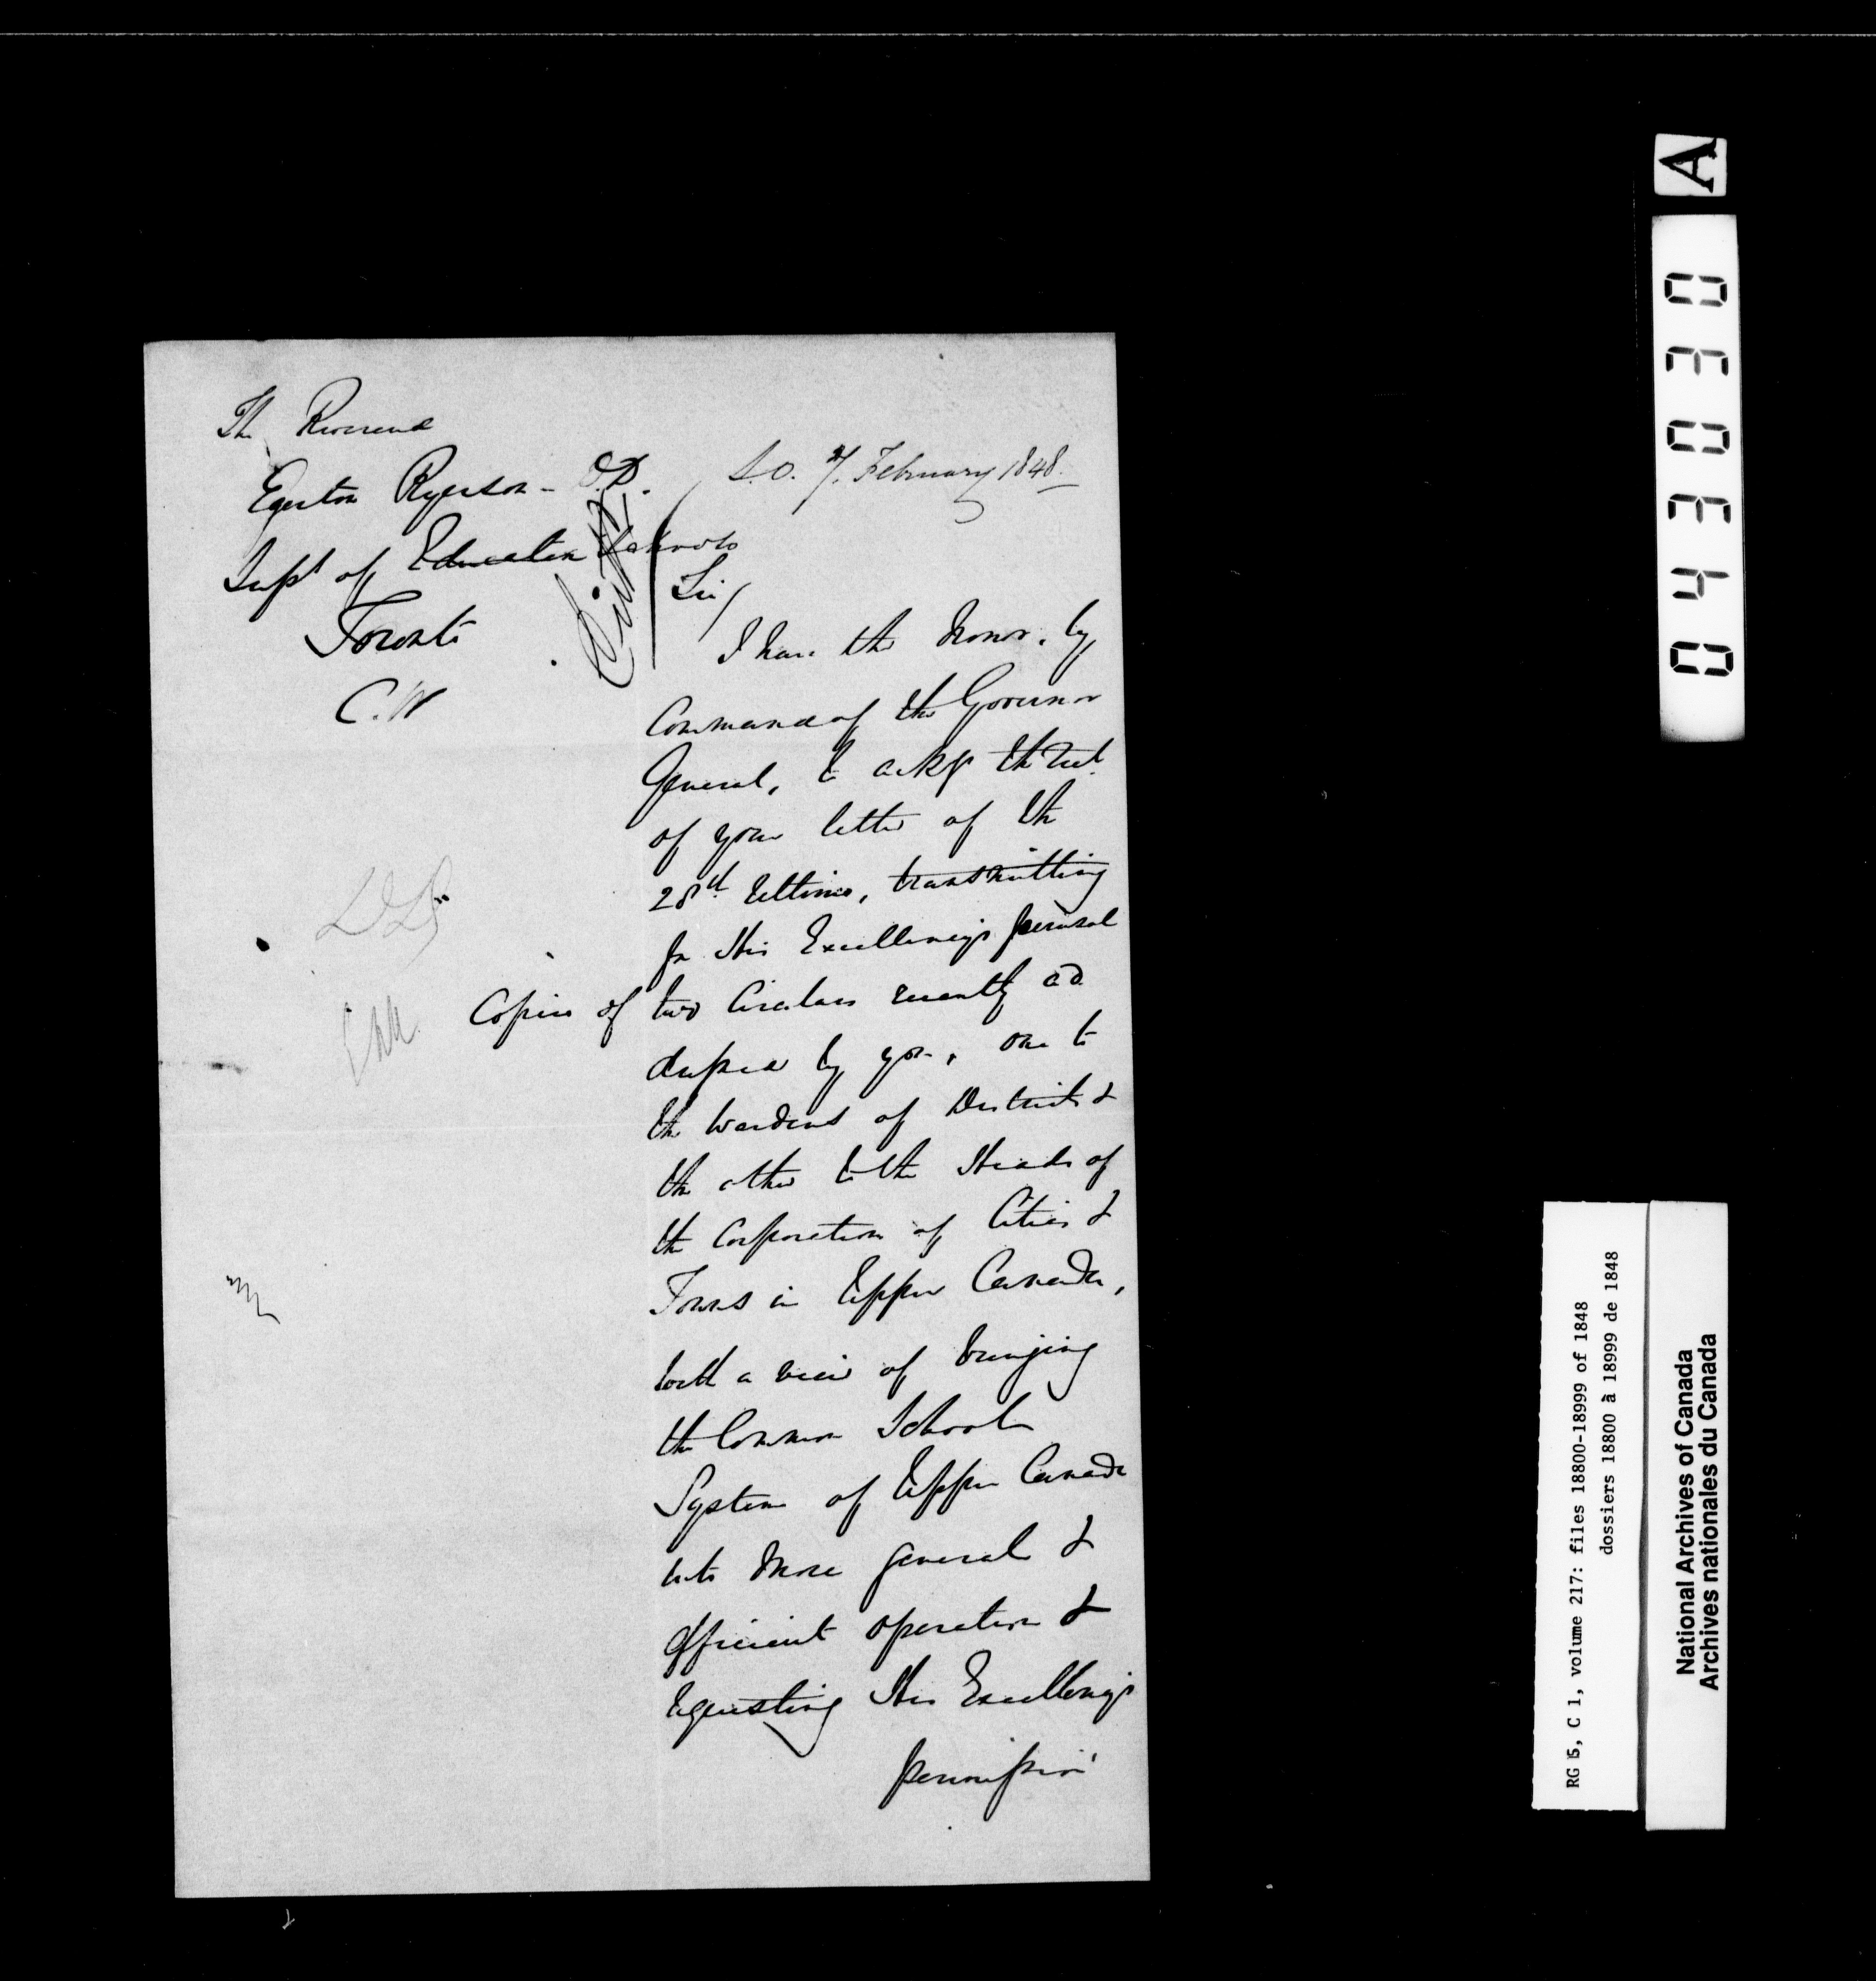 The Reverend
Egerton Ryerson - D.D.
Supt of Education Schools
Toronto
C.W
S.O. 7. February 1848.
Sir/
I have the honor, by
Command of the Governor
General, to ackge the rect
of your letter of the
28th Ultimo, transmitting
for His Excellency's perusal
Copies of two Circulars recently ad
dressed by you, one to
the Wardens of Districts &
the other to the Heads of
the Corporation of Cities &
Towns in Upper Canada,
with a view of bringing
the Common School
System of Upper Canada
into more general &
efficient operation &
requesting His Excellency's
permission
A
043030
RG 5, C 1, volume 217: files 18800-18999 of 1848
dossiers 18800 à 18999 de 1848
National Archives of Canada
Archives nationales du Canada